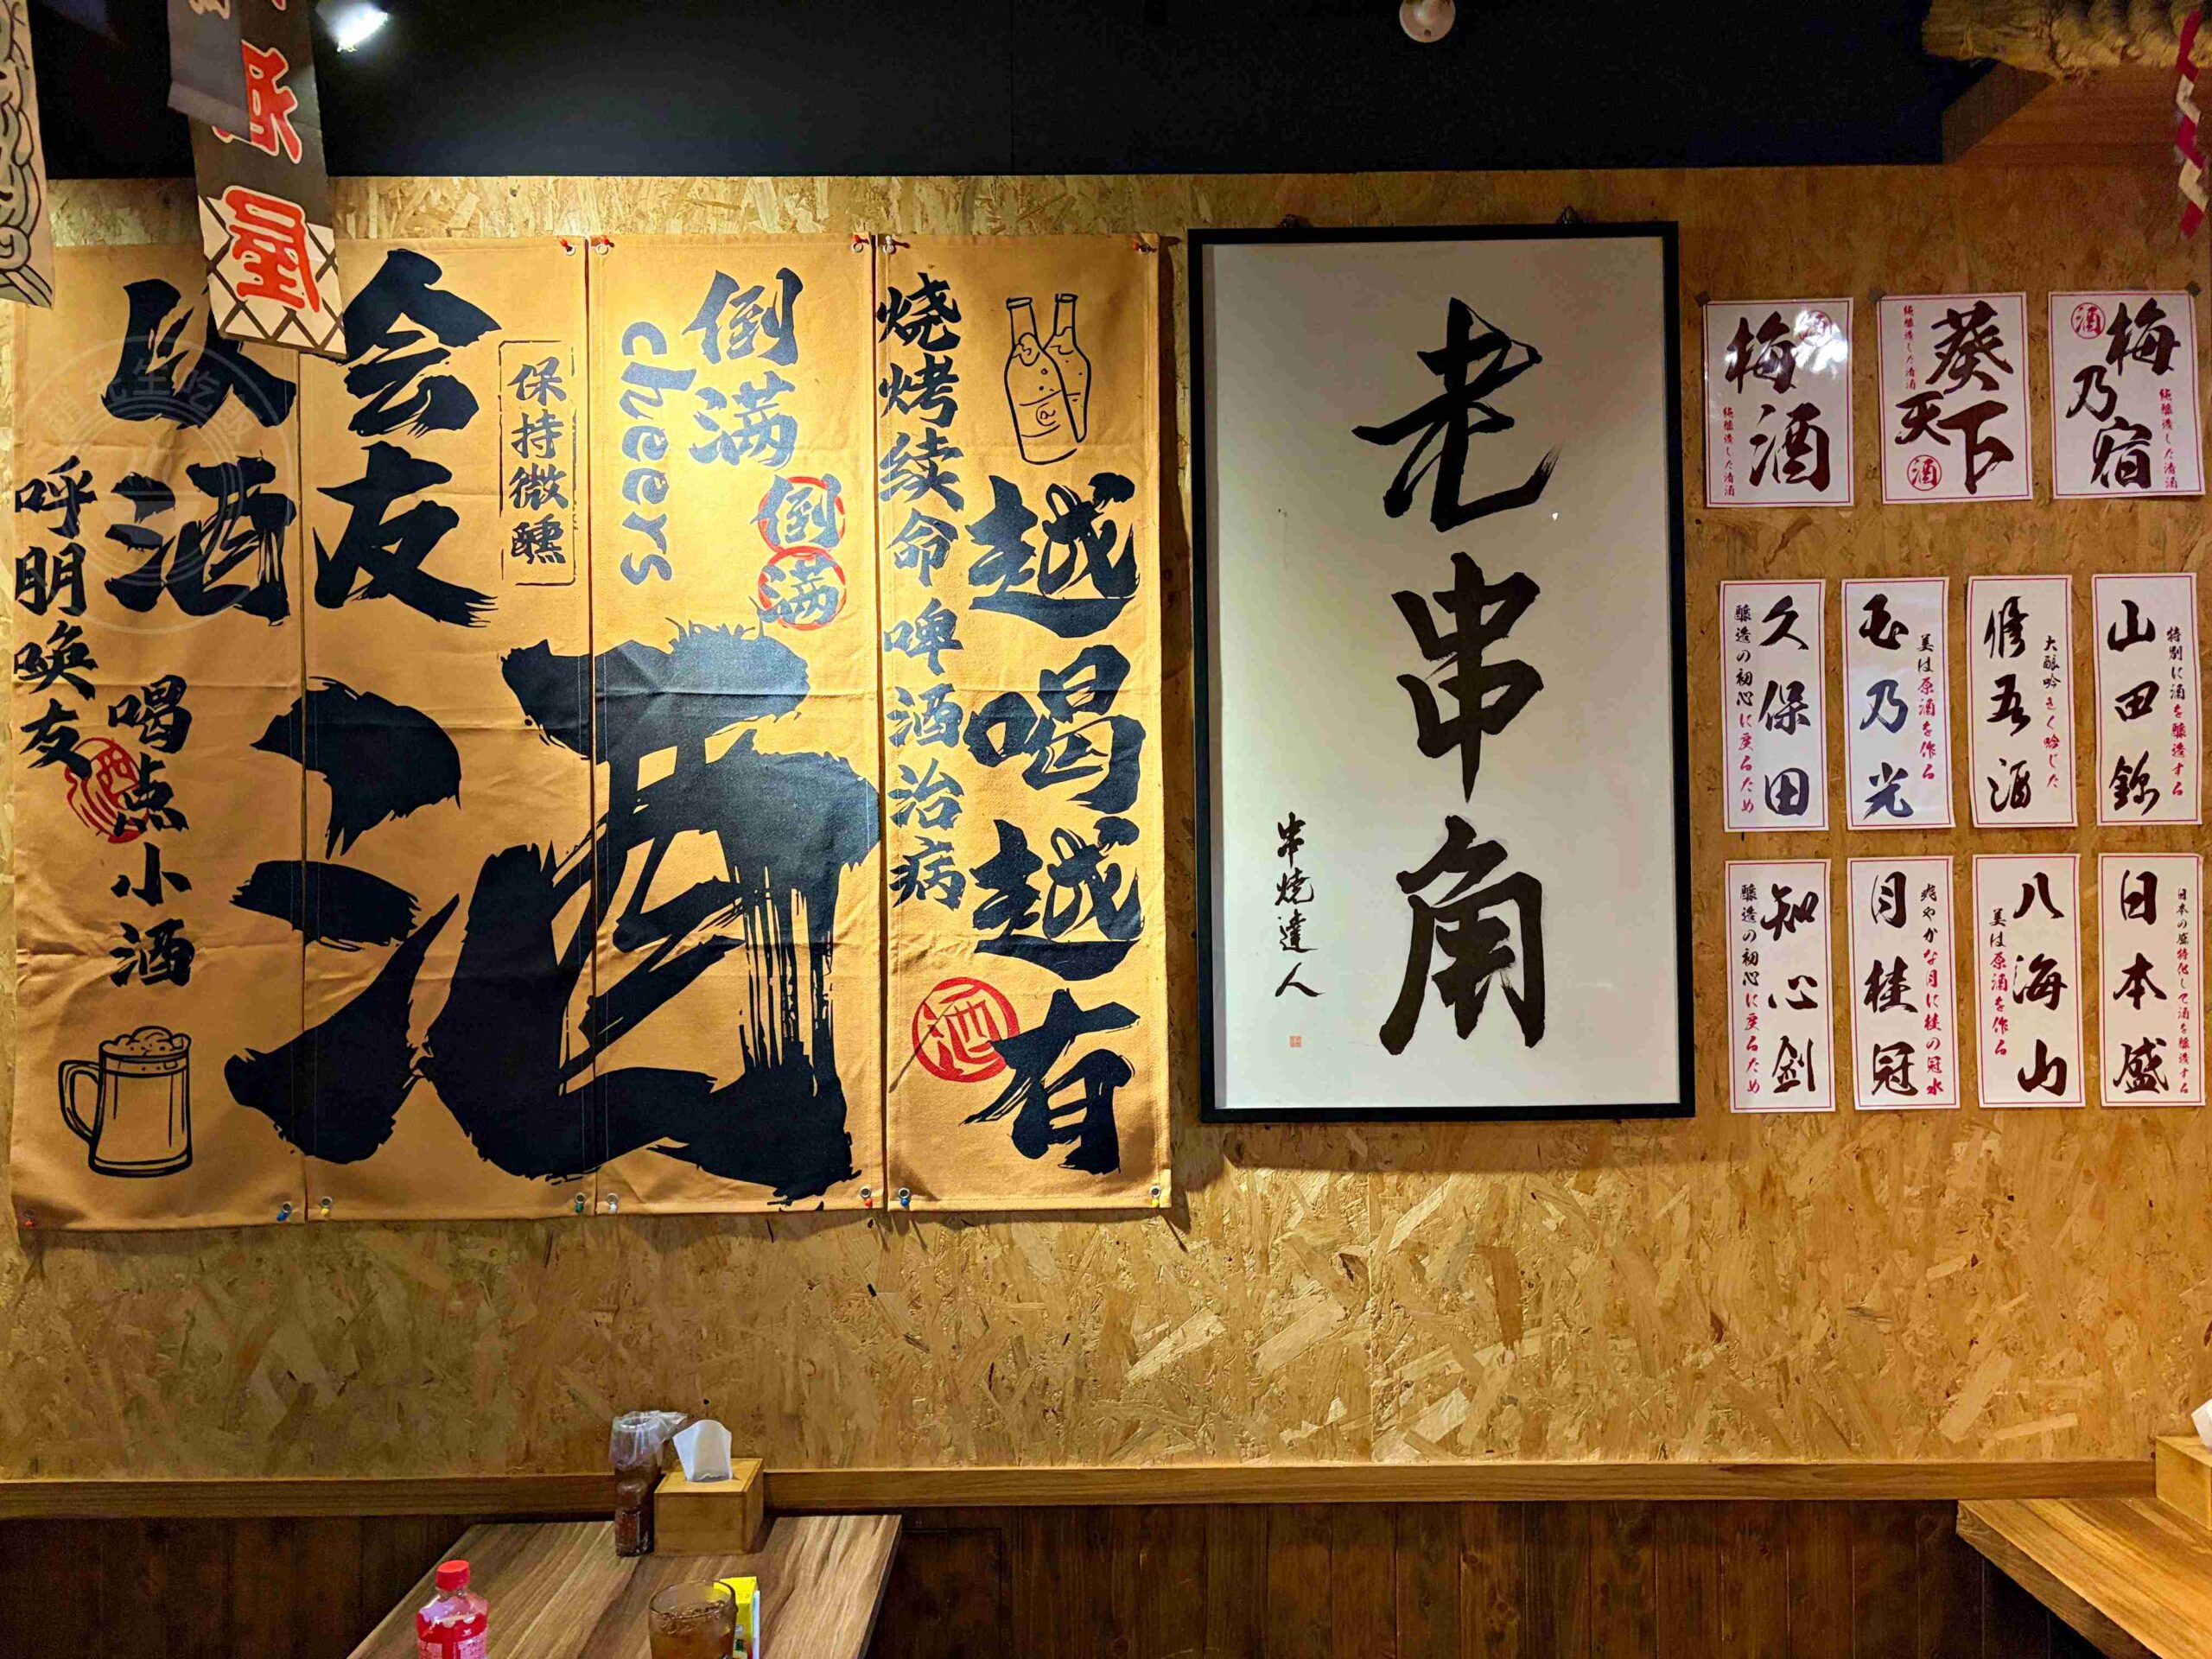 屋
以酒
会友
呼朋唤友
喝点小酒
酒
保持微醺
酒
倒满
倒满
cheers
烧烤续命啤酒治病
越喝越有
酒
老串角
串燒達人
梅酒
酒
純醸造した清酒
葵天下
酒
純醸造した清酒
梅乃宿
酒
純醸造した清酒
久保田
醸造の初心に戻るため
乃光
美は原酒を作る
修吾酒
大醸吟きく吟じた
山田錦
特別に酒を醸造する
知心剑
醸造の初心に戻るため
月桂冠
爽やかな月に桂の冠水
八海山
美は原酒を作る
日本盛
日本の盛特化して酒を醸造する